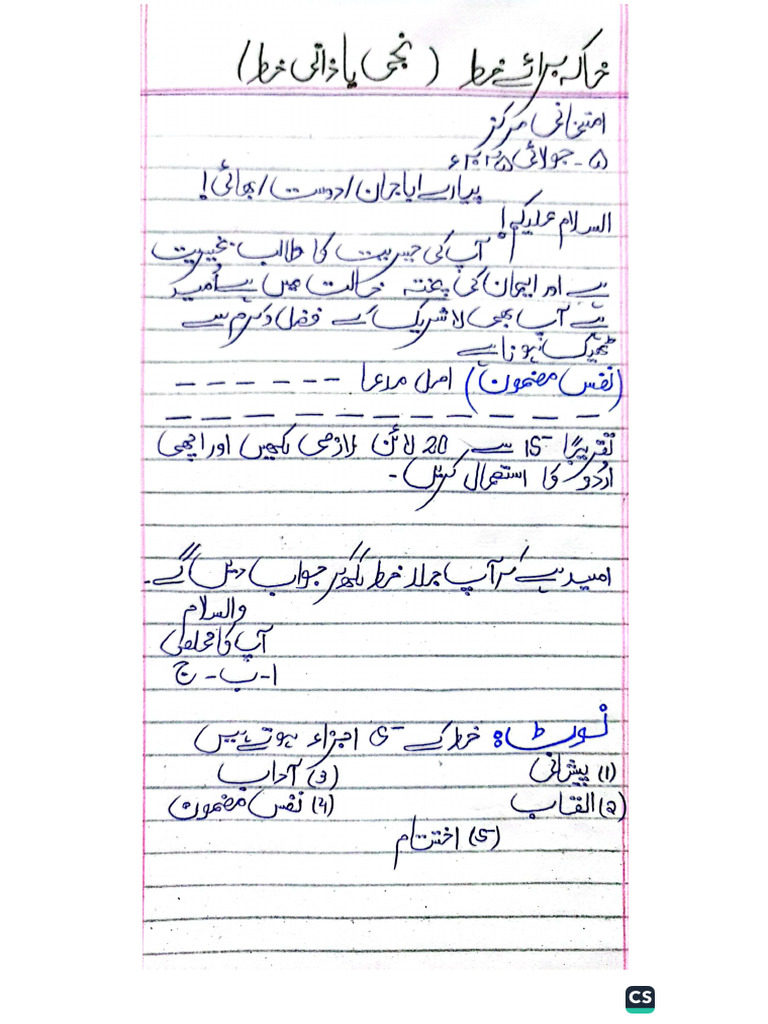 خاکہ برائے خط (نجی یا ذاتی خط)
امتحانی مرکز
۵-جولائی ۲۰۲۵ء
پیارے ابا جان/دوست/بھائی!
السلام علیکم!
آپ کی خیریت کا طالب بخیریت
ہے اور ایمان کی پختہ حالت میں ہے اُمید
ہے آپ بھی لاشریک کے فضل و کرم سے
ٹھیک ہونا ہے
(نفس مضمون) اصل مدعا ------
-------------
تقریباً 15 سے 20 لائن لازمی لکھیں اور اچھی
اُردو کا استعمال کریں-
امید ہے کہ آپ جلد خط لکھ کر جواب دیں گے-
والسلام
آپ کا مخلص
ا-ب-ج
نوٹ: خط کے 5 اجزاء ہوتے ہیں
(1) پیشانی (3) آداب
(2) القاب (4) نفس مضمون
(5) اختتام
CS